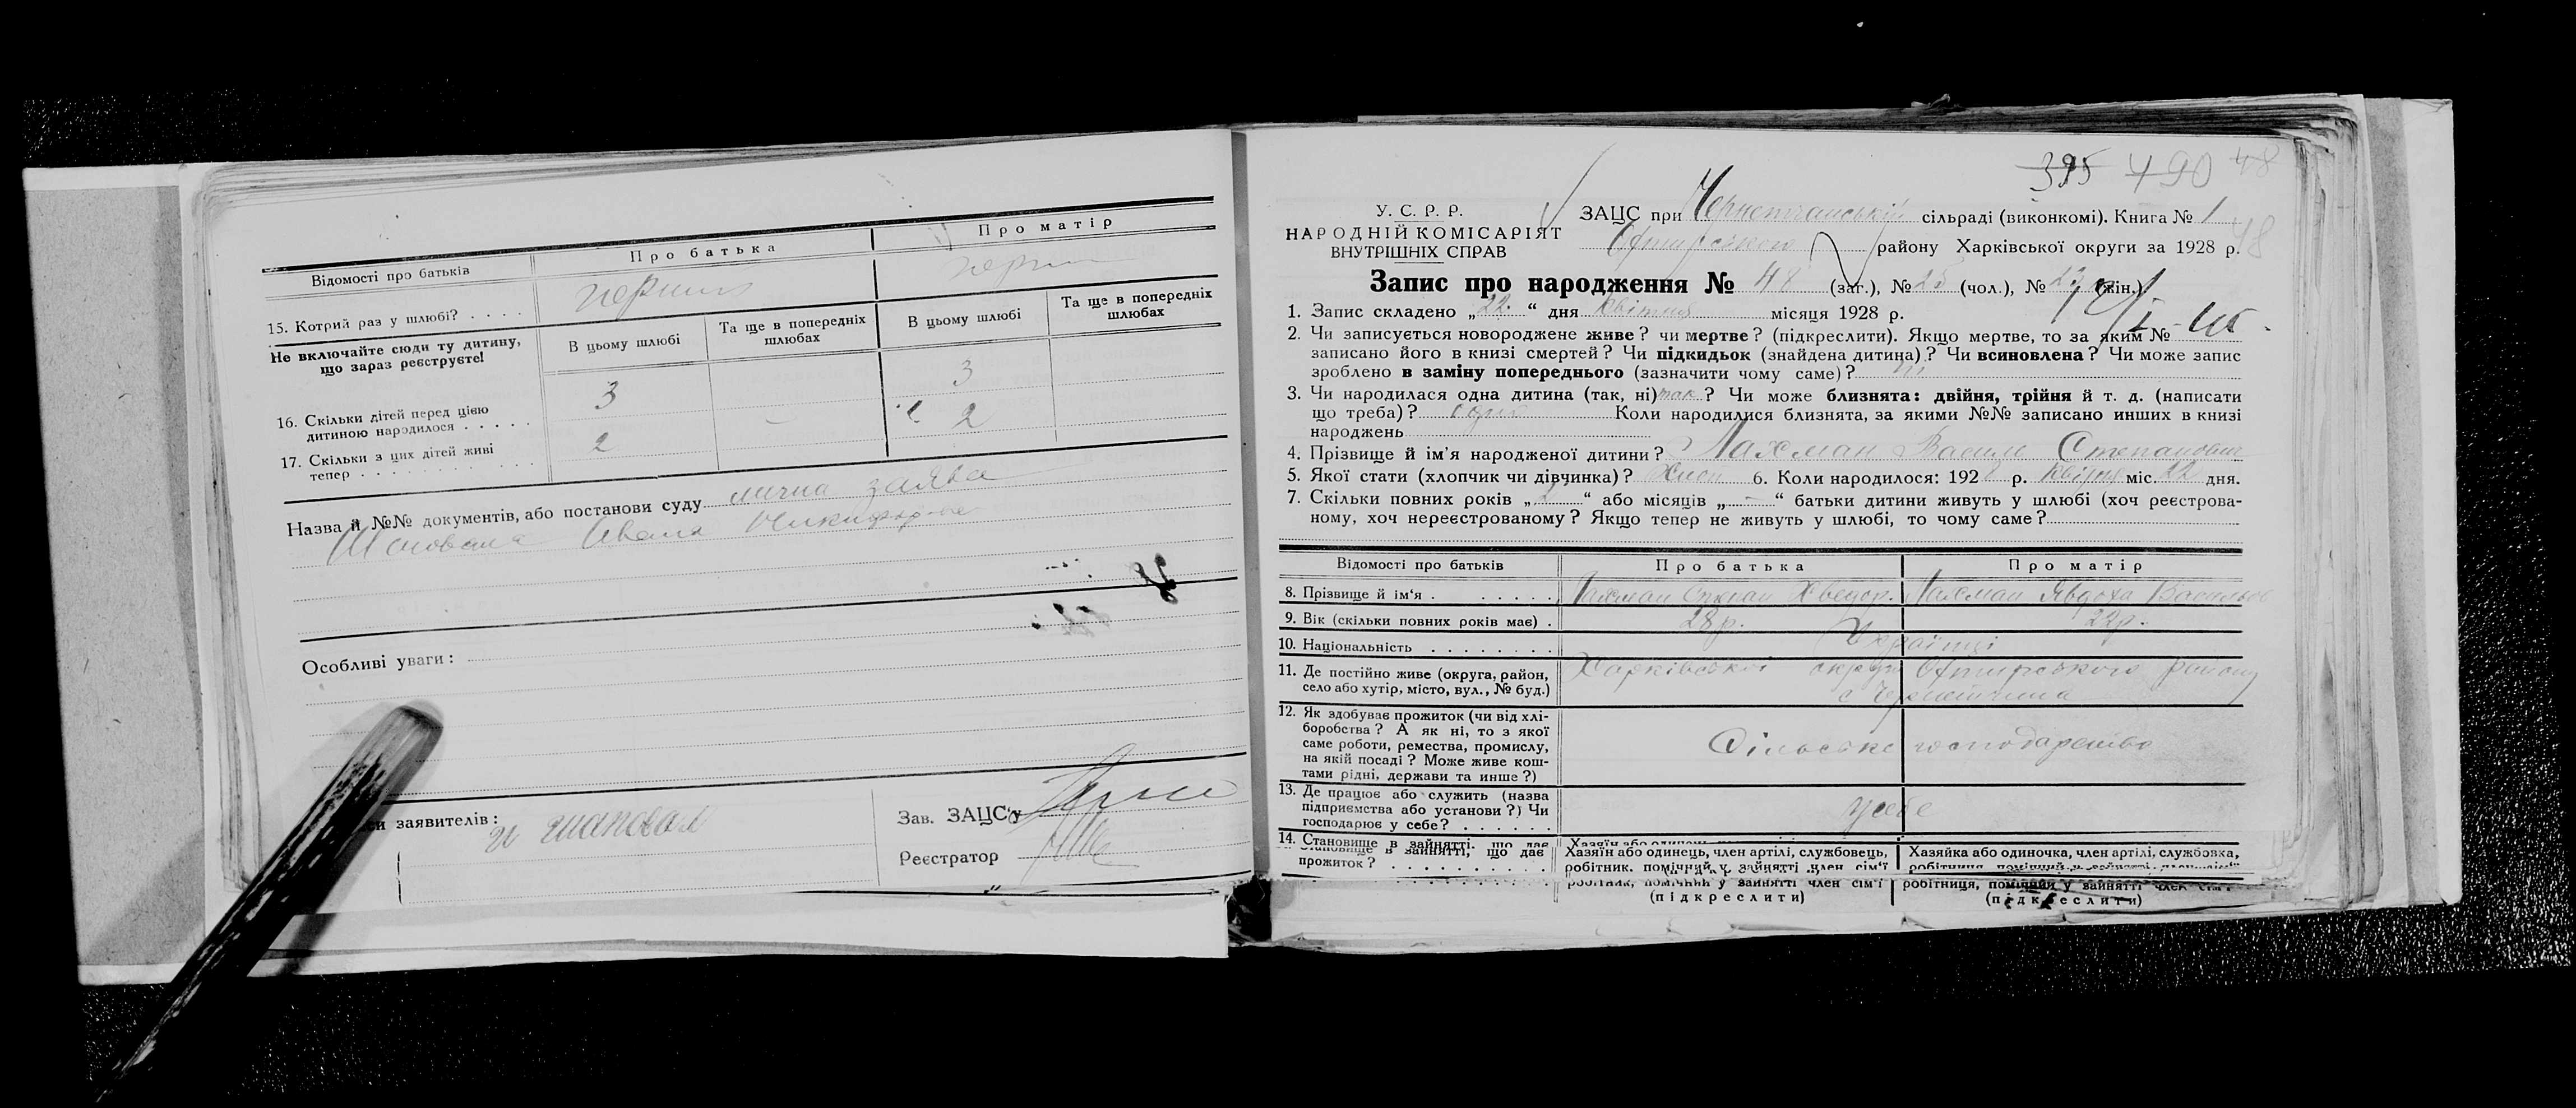 Відомості про батьків
Про батька
Про матір
15. Котрий раз у шлюбі? . . . .
перший
Не включайте сюди ту дитину,
що зараз реєструєте!
В цьому шлюбі
Та ще в попередніх
шлюбах
В цьому шлюбі
Та ще в попередніх
шлюбах
16. Скільки дітей перед цією
дитиною народилося . . . . .
3
3
17. Скільки з цих дітей живі
тепер . . . . . . . . . . .
2
-
2
Назва й №№ документів, або постанови суду лична заява
Шаповала Ивана
Особливі уваги:
заявителів:
и шаповал
Зав. ЗАЦС'у
Реєстратор
395 490 48
48
У. С. Р. Р.
НАРОДНІЙ КОМІСАРІЯТ
ВНУТРІШНІХ СПРАВ
ЗАЦС при сільраді (виконкомі). Книга № 1
району Харківської округи за 1928 р.
Запис про народження № 48 (заг.), № 25 (чол.), № (жін.)
1. Запис складено „22“ дня квітня місяця 1928 р.
2. Чи записується новороджене живе? чи мертве? (підкреслити). Якщо мертве, то за яким №
записано його в книзі смертей? Чи підкидьок (знайдена дитина)? Чи всиновлена? Чи може запис
зроблено в заміну попереднього (зазначити чому саме)? ні
3. Чи народилася одна дитина (так, ні) так? Чи може близнята: двійня, трійня й т. д. (написати
що треба)? Коли народилися близнята, за якими №№ записано инших в книзі
народжень
4. Прізвище й ім'я народженої дитини? Лахман Василь Степанович
5. Якої стати (хлопчик чи дівчинка)? 6. Коли народилося: 1928 р. квітня міс. 22 дня.
7. Скільки повних років „ “ або місяців „—“ батьки дитини живуть у шлюбі (хоч реєстрова-
ному, хоч нереєстрованому? Якщо тепер не живуть у шлюбі, то чому саме?
Відомості про батьків
Про батька
Про матір
8. Прізвище й ім'я . . . . . . .
Лахман Степан Хведор.
Лахман Явдоха Васильов
9. Вік (скільки повних років має) .
28 р.
22 р.
10. Національність . . . . . . . .
Українці
11. Де постійно живе (округа, район,
село або хутір, місто, вул., № буд.)
Харківської округи Охтирського району
12. Як здобуває прожиток (чи від хлі-
боробства? А як ні, то з якої
саме роботи, ремества, промислу,
на якій посаді? Може живе кош-
тами рідні, держави та инше?)
Сільське господарство
13. Де працює або служить (назва
підприємства або установи?) Чи
господарює у себе? . . . . . .
у себе
14. Становище в зайнятті, що дає
прожиток? . . . . . . . . . .
Хазяїн або одинець, член артілі, службовець,
робітник, помічний у зайнятті член сім'ї
(підкреслити)
Хазяйка або одиночка, член артілі, службовка,
робітниця, помічний у зайнятті член сім'ї
(підкреслити)